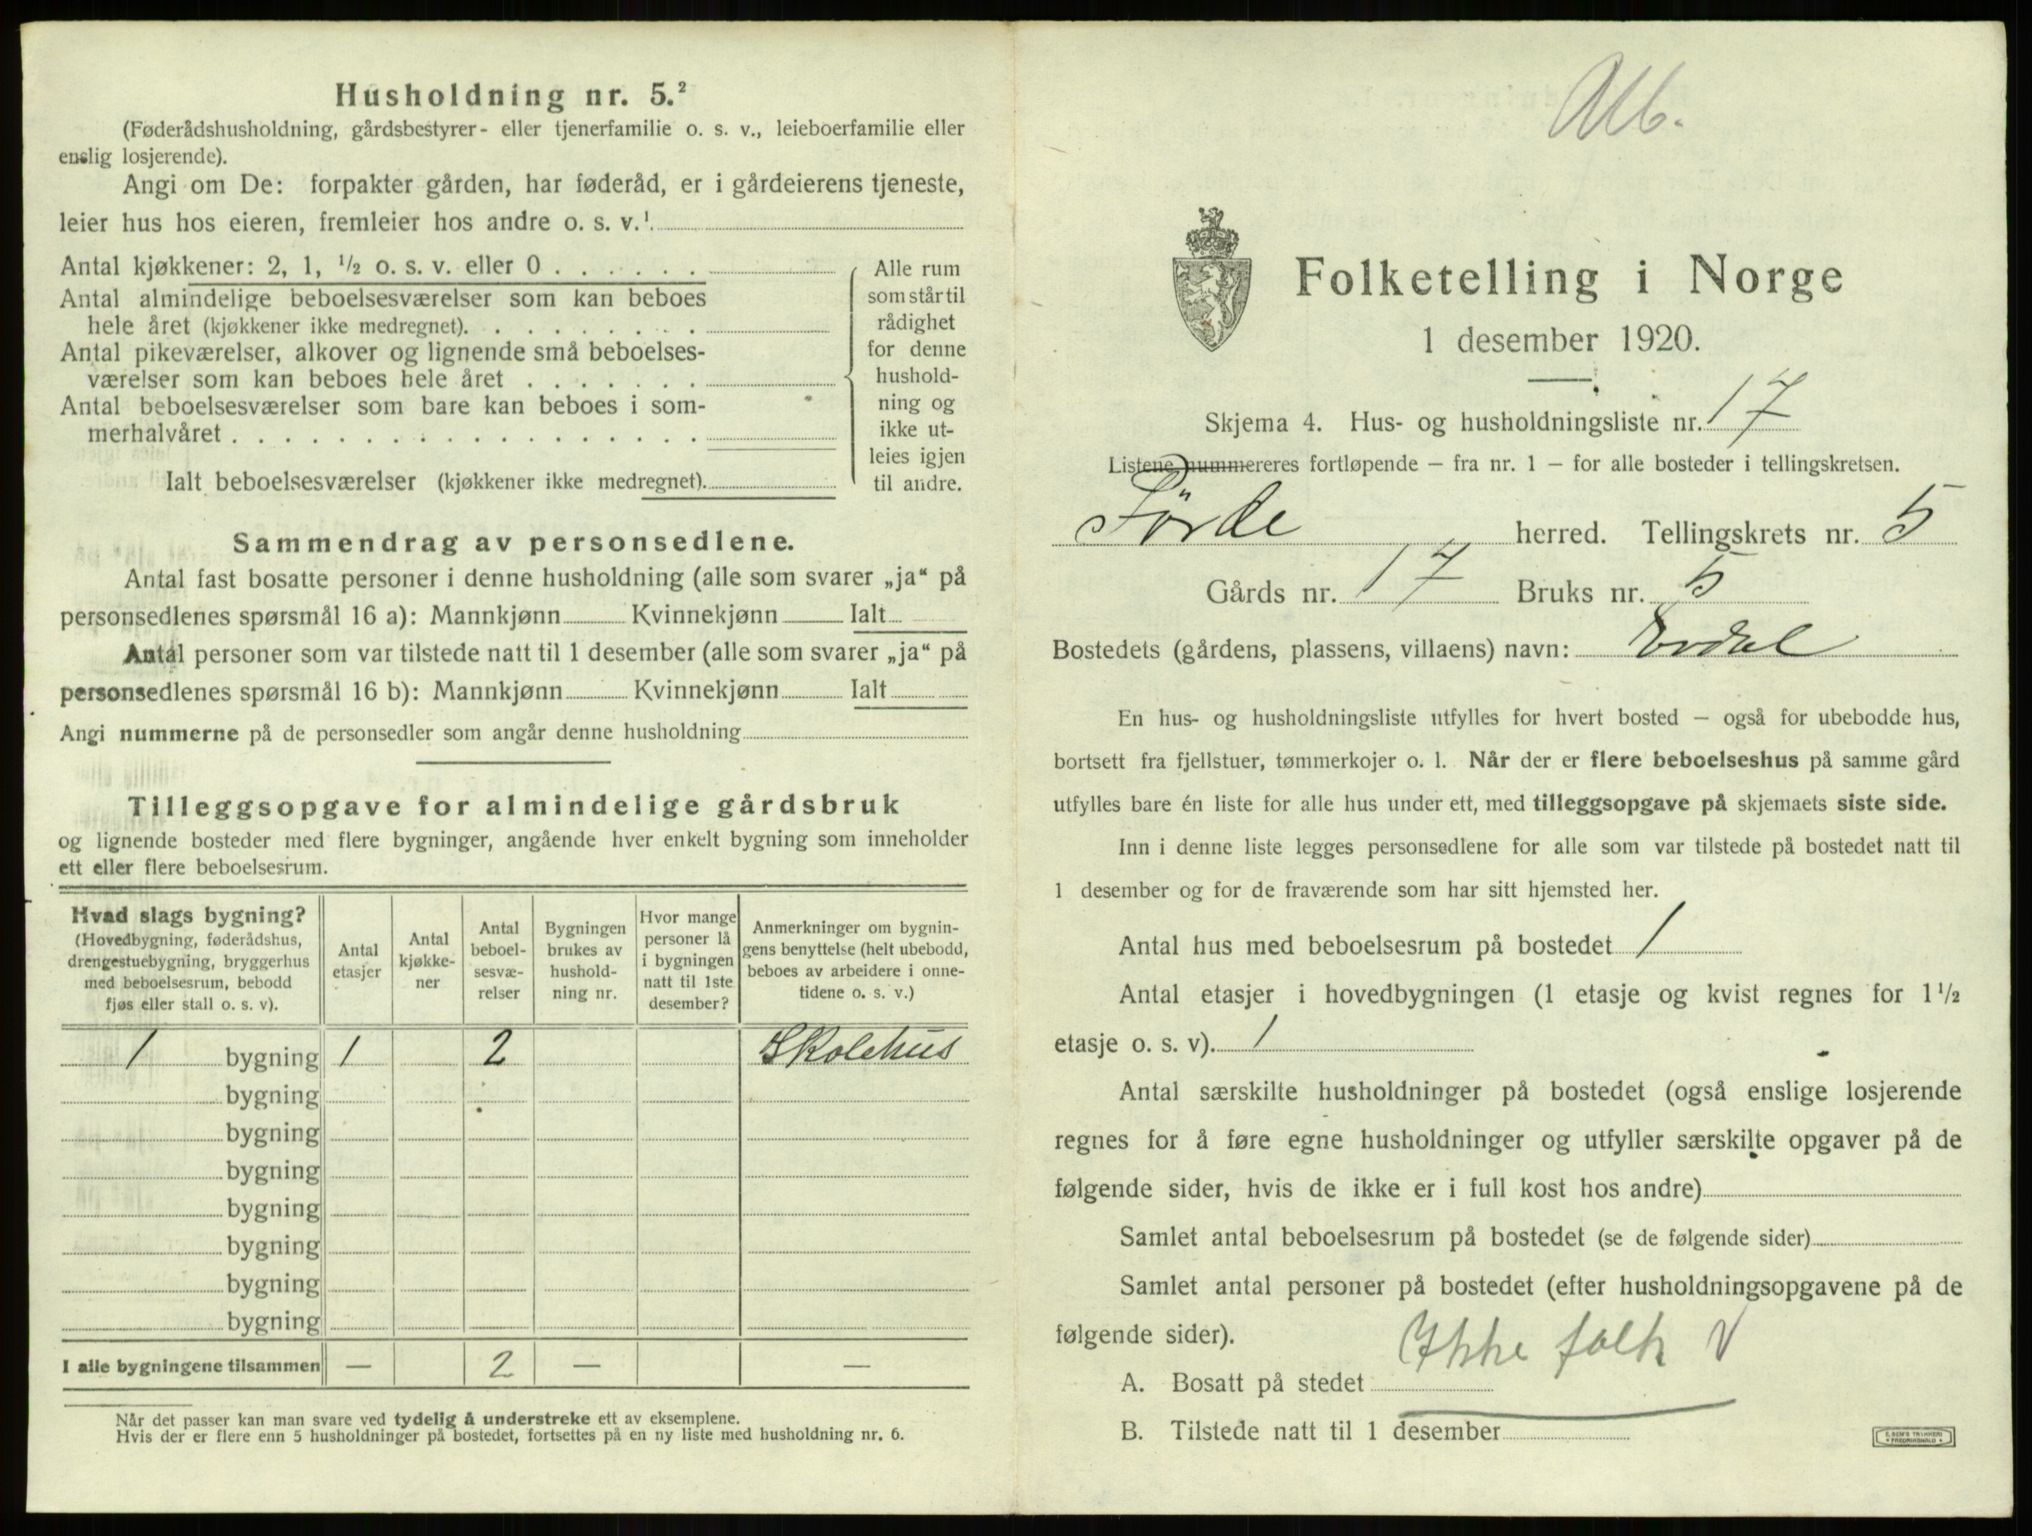 Husholdning nr. 5.²
(Føderådshusholdning, gårdsbestyrer- eller tjenerfamilie o. s. v., leieboerfamilie eller
enslig losjerende).
Angi om De: forpakter gården, har føderåd, er i gårdeierens tjeneste,
leier hus hos eieren, fremleier hos andre o. s. v.¹
Antal kjøkkener: 2, 1, ½ o. s. v. eller 0 . . . . . .
Antal almindelige beboelsesværelser som kan beboes
hele året (kjøkkener ikke medregnet). . . . . . . . .
Antal pikeværelser, alkover og lignende små beboelses-
værelser som kan beboes hele året . . . . . . .
Antal beboelsesværelser som bare kan beboes i som-
merhalvåret . . . . . . . . . . . . . . . . . .
Ialt beboelsesværelser (kjøkkener ikke medregnet).
Alle rum
som står til
rådighet
for denne
hushold-
ning og
ikke ut-
leies igjen
til andre.
Sammendrag av personsedlene.
Antal fast bosatte personer i denne husholdning (alle som svarer „ja“ på
personsedlenes spørsmål 16 a): Mannkjønn Kvinnekjønn Ialt
Antal personer som var tilstede natt til 1 desember (alle som svarer „ja“ på
personsedlenes spørsmål 16 b): Mannkjønn Kvinnekjønn Ialt
Angi nummerne på de personsedler som angår denne husholdning
Tilleggsopgave for almindelige gårdsbruk
og lignende bosteder med flere bygninger, angående hver enkelt bygning som inneholder
ett eller flere beboelsesrum.
Hvad slags bygning?
(Hovedbygning, føderådshus,
drengestuebygning, bryggerhus
med beboelsesrum, bebodd
fjøs eller stall o. s. v).
Antal
etasjer
Antal
kjøkke-
ner
Antal
beboel-
sesvæ-
relser
Bygningen
brukes av
hushold-
ning nr.
Hvor mange
personer lå
i bygningen
natt til 1ste
desember?
Anmerkninger om bygnin-
gens benyttelse (helt ubebodd,
beboes av arbeidere i onne-
tidene o. s. v.)
1 bygning 1 2 Skolehus
bygning
bygning
bygning
bygning
bygning
bygning
bygning
I alle bygningene tilsammen — 2 — —
Når det passer kan man svare ved tydelig å understreke ett av eksemplene.
Hvis der er flere enn 5 husholdninger på bostedet, fortsettes på en ny liste med husholdning nr. 6.
Folketelling i Norge
1 desember 1920.
Skjema 4. Hus- og husholdningsliste nr. 17
Listene nummereres fortløpende – fra nr. 1 – for alle bosteder i tellingskretsen.
Førde herred. Tellingskrets nr. 5
Gårds nr. 17 Bruks nr. 5
Bostedets (gårdens, plassens, villaens) navn: Erdal
En hus- og husholdningsliste utfylles for hvert bosted – også for ubebodde hus,
bortsett fra fjellstuer, tømmerkojer o. l. Når der er flere beboelseshus på samme gård
utfylles bare én liste for alle hus under ett, med tilleggsopgave på skjemaets siste side.
Inn i denne liste legges personsedlene for alle som var tilstede på bostedet natt til
1 desember og for de fraværende som har sitt hjemsted her.
Antal hus med beboelsesrum på bostedet 1
Antal etasjer i hovedbygningen (1 etasje og kvist regnes for 1½
etasje o. s. v). 1
Antal særskilte husholdninger på bostedet (også enslige losjerende
regnes for å føre egne husholdninger og utfyller særskilte opgaver på de
følgende sider, hvis de ikke er i full kost hos andre)
Samlet antal beboelsesrum på bostedet (se de følgende sider)
Samlet antal personer på bostedet (efter husholdningsopgavene på de
følgende sider). Ikke folk V
A. Bosatt på stedet
B. Tilstede natt til 1 desember